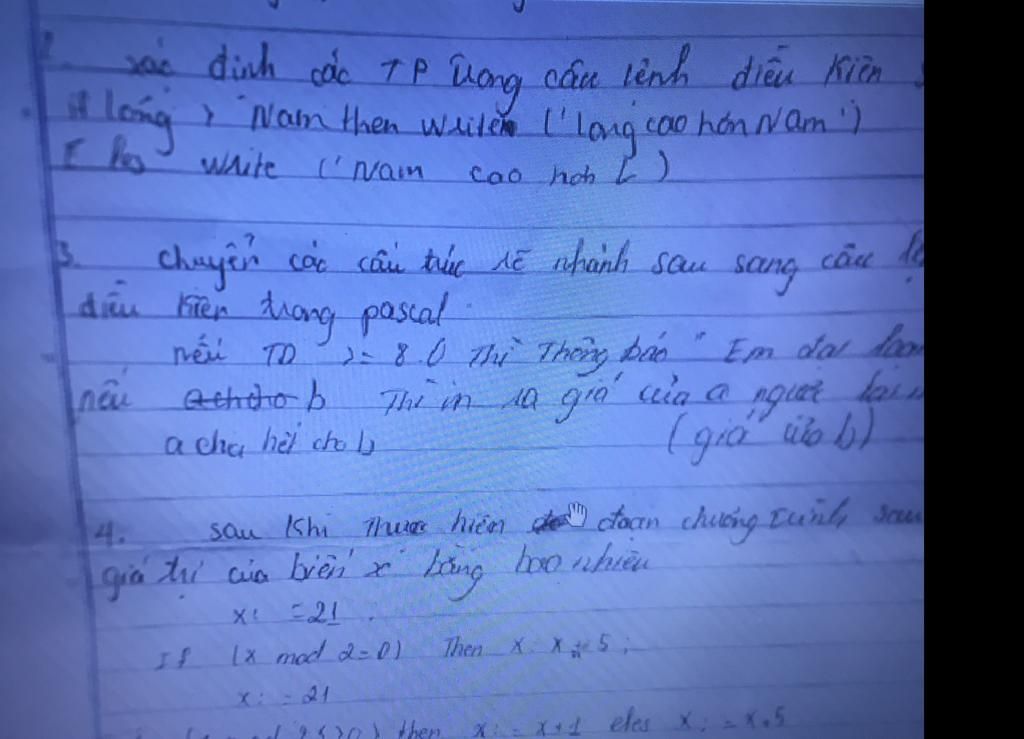 2. xác định các TP trong câu lệnh điều kiện
If long > Nam then write ('long cao hơn Nam')
write ('Nam cao hơn L')
3. chuyển các cấu trúc rẽ nhánh sau sang câu
điều kiện trong pascal
nếu TD >= 8.0 Thì Thông báo " Em đạt
nếu b Thì in ra giá của a ngược lại
a chia hết cho b (giá của b)
4. sau khi thực hiện đoạn chương trình sau
giá trị của biến x bằng bao nhiêu
x: =21
If (x mod 2=0) Then x: x 5;
x: = 21
then x: = x+1 eles x: = x.5